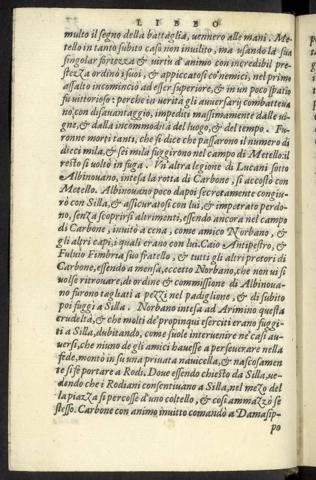 LIBRO
multo il segno della battaglia, vennero alle mani. Me-
tello in tanto subito caso non invilito, ma usando la sua
singolar fortezza & virtù d'animo con incredibil pre-
stezza ordinò i suoi, & appiccatosi co'nemici, nel primo
assalto incominciò ad esser superiore, & in un poco spatio
fu vittorioso: perche in verità gli auversarij combatteua
no, con disauantaggio, impediti massimamente dalle ui-
gne, & dalla incommodità del luogo, & del tempo. Fu-
ronne morti tanti, che si dice che passarono il numero di
dieci mila, & sei mila fuggirono nel campo di Metello: il
resto si uoltò in fuga. Vn'altra legione di Lucani sotto
Albinouano, intesa la rotta di Carbone, si accostò con
Metello. Albinouano poco dapoi secretamente congiu-
rò con Silla, & assicuratosi con lui, & impetrato perdo-
no, senza scoprirsi altrimenti, essendo ancora nel campo
di Carbone, inuitò a cena, come amico Norbano, &
gli altri capi, i quali erano con lui. Caio Antipestro, &
Fuluio Fimbria suo fratello, & tutti gli altri pretori di
Carbone, essendo a mensa, eccetto Norbano, che non ui si
uolse ritrouare, di ordine & commissione di Albinoua-
no furono tagliati a pezzi nel padiglione, & di subito
poi fuggì a Silla. Norbano intesa ad Arimino questa
crudeltà, & che molti de'propinqui eserciti erano fuggi-
ti a Silla, dubitando, come suole interuenire ne'casi au-
uersi, che niuno de gli amici hauesse a perseuerare nella
fede, montò in su una priuata nauicella, & nascosamen-
te si fè portare a Rodi. Doue essendo chiesto da Silla, ue-
dendo che i Rodiani consentiuano a Silla, nel mezo del
la piazza si percosse d'uno coltello, & così ammazzò se
stesso. Carbone con animo inuitto comandò a Damasip-
po